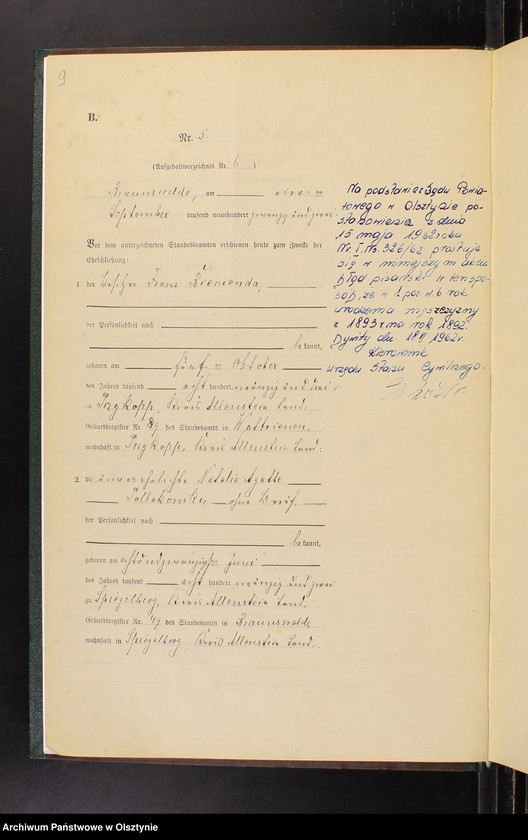 9
B.
Nr. 5.
(Aufgebotsverzeichnis Nr. 6)
Braunswalde, am vier ten
September tausend neunhundert zwanzig und zwei
Vor dem unterzeichneten Standesbeamten erschienen heute zum Zwecke der
Eheschließung:
1. der Franz
der Persönlichkeit nach
bekannt,
geboren am fünf ten Oktober
des Jahres tausend acht hundert neunzig und drei
in Przykopp, Kreis Allenstein Land.
Geburtsregister Nr. 89 des Standesamts in
wohnhaft in Przykopp, Kreis Allenstein Land;
2. die unverehelichte Natalie Agathe
ohne Beruf,
der Persönlichkeit nach
bekannt,
geboren am achtundzwanzigsten Juni
des Jahres tausend acht hundert neunzig und zwei
zu Spiegelberg, Kreis Allenstein Land.
Geburtsregister Nr. 49 des Standesamts in Braunswalde
wohnhaft in Spiegelberg, Kreis Allenstein Land.
Na podstawie Sądu Powia-
towego w Olsztynie po-
stanowienia z dnia
15 maja 1962 roku
Nr. I. Ns. 326/62 prostuje
się w niniejszym akcie
błąd pisarski w ten spo-
sób, że w 1 poz. w. 6 rok
urodzenia mężczyzny
z 1893 r na rok 1892.
Dywity dn 1962r.
Kierownik
Urzędu Stanu Cywilnego.
Archiwum Państwowe w Olsztynie